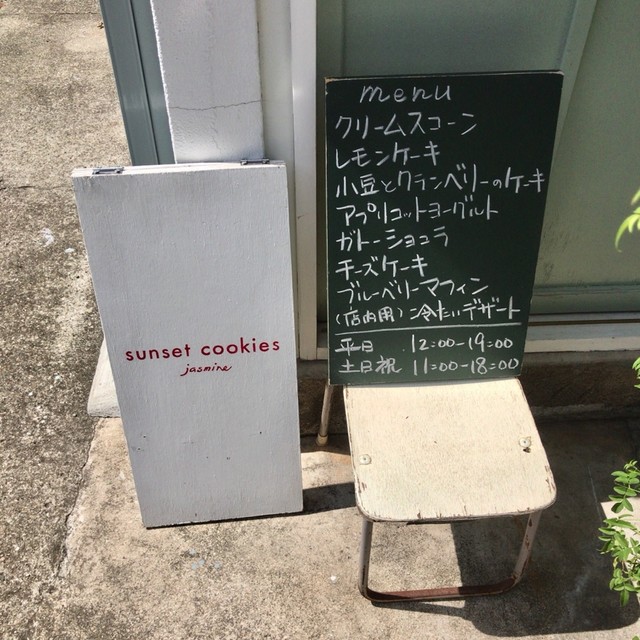 sunset cookies
jasmine
menu
クリームスコーン
レモンケーキ
小豆とクランベリーのケーキ
アプリコットヨーグルト
ガトーショコラ
チーズケーキ
ブルーベリーマフィン
(店内用)冷たいデザート
平日 12:00-19:00
土日祝 11:00-18:00